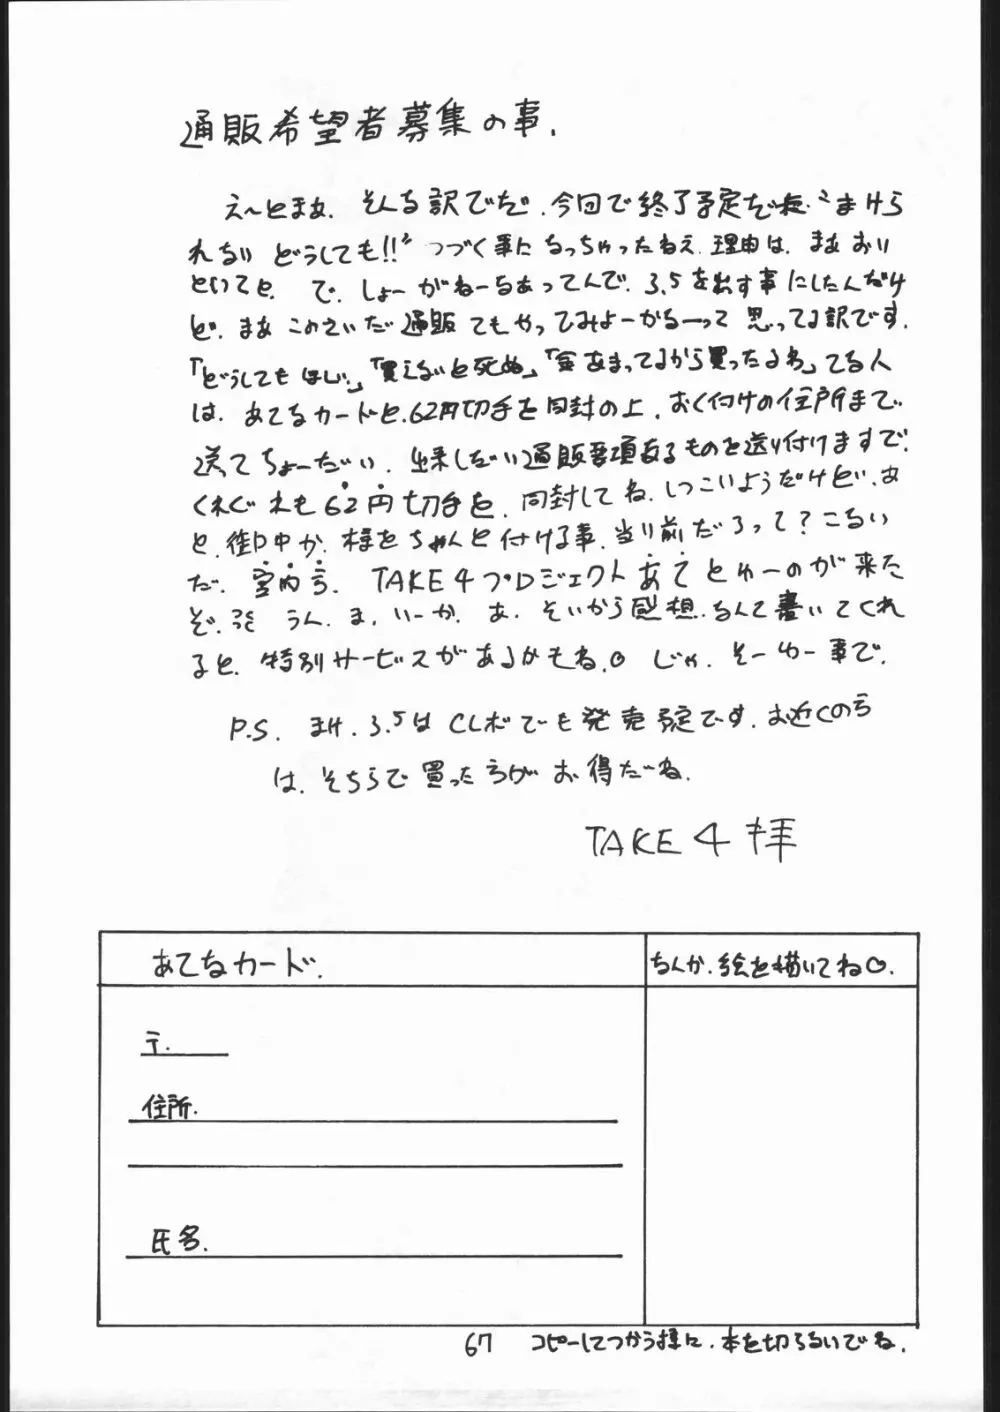 通販希望者募集の事.
え〜とまぁ. そんな訳でだ. 今回で終了予定だった "まけら
れない どうしても!!" つづく事になっちゃったねえ. 理由は. まあ おい
といてと. で. しょーがねーなあってんで. 3.5を出す事にしたんだけ
ど. まあ このさいだ 通販でもやってみよーかなーって 思ってる訳です.
「どうしてもほしい.」「買えないと死ぬ」「金あまってるから買ったるわ」てな人
は. あてなカードと. 62円切手を同封の上. おく付けの住所まで
送ってちょーだい. 出来しだい通販要項なるものを送り付けますで.
くれぐれも62円切手を. 同封してね. しつこいようだけど. あ
と. 御中か. 様をちゃんと付ける事. 当り前だろって? こない
だ. 宮内さ. TAKE4プロジェクトあてとゆーのが来た
ぞ. うん. ま. いーか. あ. そいから感想. なんて書いてくれ
ると. 特別サービスがあるかもね.♡ じゃ. そーゆー事で.
P.S. まけ. 3.5はCLボでも発売予定です. お近くの方
は. そちらで買った方がお得だね.
TAKE4 拝
あてなカード.
なんか. 絵を描いてね♡.
〒.
住所.
氏名.
67 コピーしてつかう様に. 本を切らないでね.